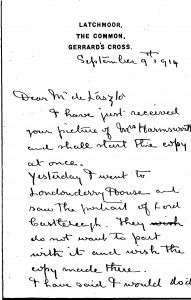 LATCHMOOR,
THE COMMON,
GERRARD'S CROSS.
September 9th 1914
Dear Mr de László
I have just received
your picture of Mrs Harmsworth
and shall start the copy
at once.
Yesterday I went to
Londonderry House and
saw the portrait of Lord
Castlereagh. They wish
do not want to part
with it and wish the
copy made there.
I have said I would do it